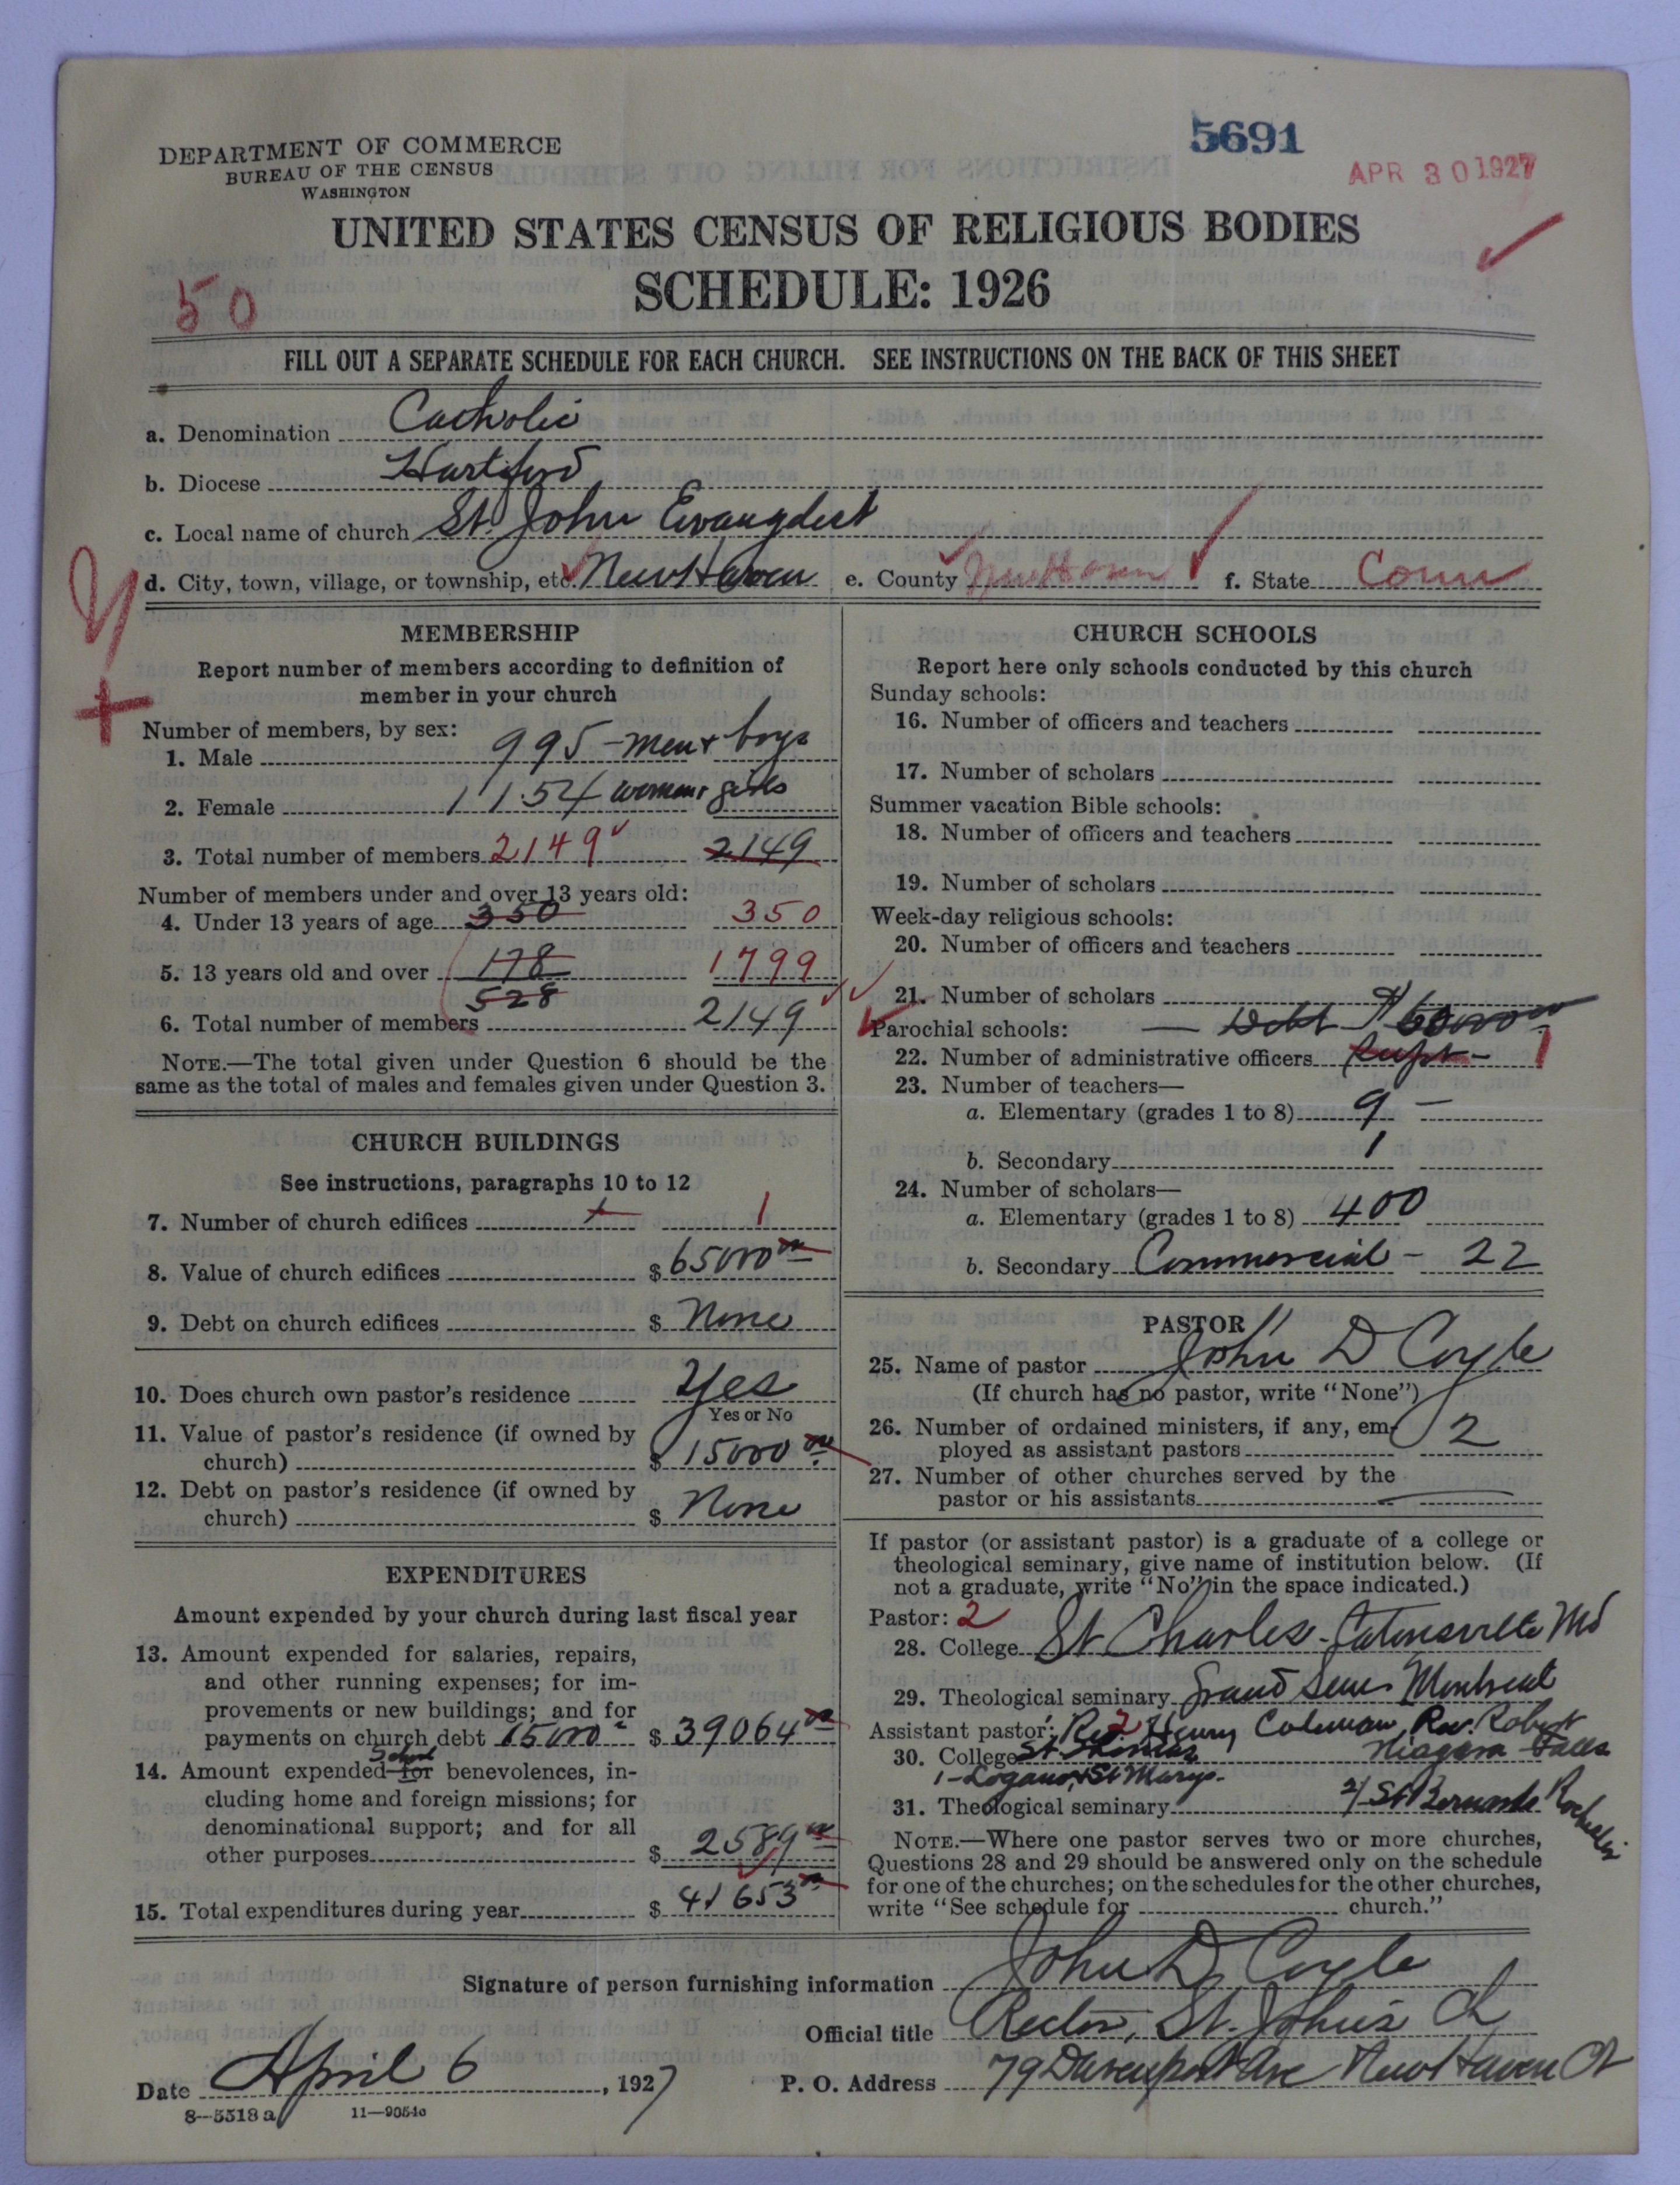 5691
APR 30 1927
DEPARTMENT OF COMMERCE
BUREAU OF THE CENSUS
WASHINGTON
UNITED STATES CENSUS OF RELIGIOUS BODIES
SCHEDULE: 1926
50
FILL OUT A SEPARATE SCHEDULE FOR EACH CHURCH. SEE INSTRUCTIONS ON THE BACK OF THIS SHEET
a. Denomination Catholic
b. Diocese Hartford
c. Local name of church St. John Evangelist
d. City, town, village, or township, etc. New Haven e. County New Haven f. State Conn
MEMBERSHIP
Report number of members according to definition of
member in your church
Number of members, by sex:
1. Male 995 - men & boys
2. Female 1154 women & girls
3. Total number of members 2149 2149
Number of members under and over 13 years old:
4. Under 13 years of age 350 350
5. 13 years old and over 178 1799
528
6. Total number of members 2149
NOTE.—The total given under Question 6 should be the
same as the total of males and females given under Question 3.
CHURCH BUILDINGS
See instructions, paragraphs 10 to 12
7. Number of church edifices 1 1
8. Value of church edifices $ 65000 00
9. Debt on church edifices $ None
10. Does church own pastor's residence Yes
Yes or No
11. Value of pastor's residence (if owned by
church) $ 15000 00
12. Debt on pastor's residence (if owned by
church) $ None
EXPENDITURES
Amount expended by your church during last fiscal year
13. Amount expended for salaries, repairs,
and other running expenses; for im-
provements or new buildings; and for
payments on church debt 15000 $ 39064 00
School
14. Amount expended for benevolences, in-
cluding home and foreign missions; for
denominational support; and for all
other purposes $ 2589 00
15. Total expenditures during year $ 41653 00
CHURCH SCHOOLS
Report here only schools conducted by this church
Sunday schools:
16. Number of officers and teachers
17. Number of scholars
Summer vacation Bible schools:
18. Number of officers and teachers
19. Number of scholars
Week-day religious schools:
20. Number of officers and teachers
21. Number of scholars
Parochial schools: — Debt $ 60000 00
22. Number of administrative officers Supt - 1
23. Number of teachers—
a. Elementary (grades 1 to 8) 9 —
b. Secondary 1
24. Number of scholars—
a. Elementary (grades 1 to 8) 400
b. Secondary Commercial - 22
PASTOR
25. Name of pastor John D Coyle
(If church has no pastor, write "None")
26. Number of ordained ministers, if any, em-
ployed as assistant pastors 2
27. Number of other churches served by the
pastor or his assistants —
If pastor (or assistant pastor) is a graduate of a college or
theological seminary, give name of institution below. (If
not a graduate, write "No" in the space indicated.)
Pastor: 2
28. College St Charles - Catonsville Md
29. Theological seminary Grand Sem. Montreal
Assistant pastor: Rev 2 Henry Coleman, Rev. Robert
30. College St Niagara Falls
1 - St Marys.
31. Theological seminary 2/ St Bernards Rochester
NOTE.—Where one pastor serves two or more churches,
Questions 28 and 29 should be answered only on the schedule
for one of the churches; on the schedules for the other churches,
write "See schedule for church."
Signature of person furnishing information John D. Coyle
Official title Rector, St. John's Ch
Date April 6, 1927 P. O. Address 79 Davenport Ave New Haven Ct
8—5518 a 11—9054c